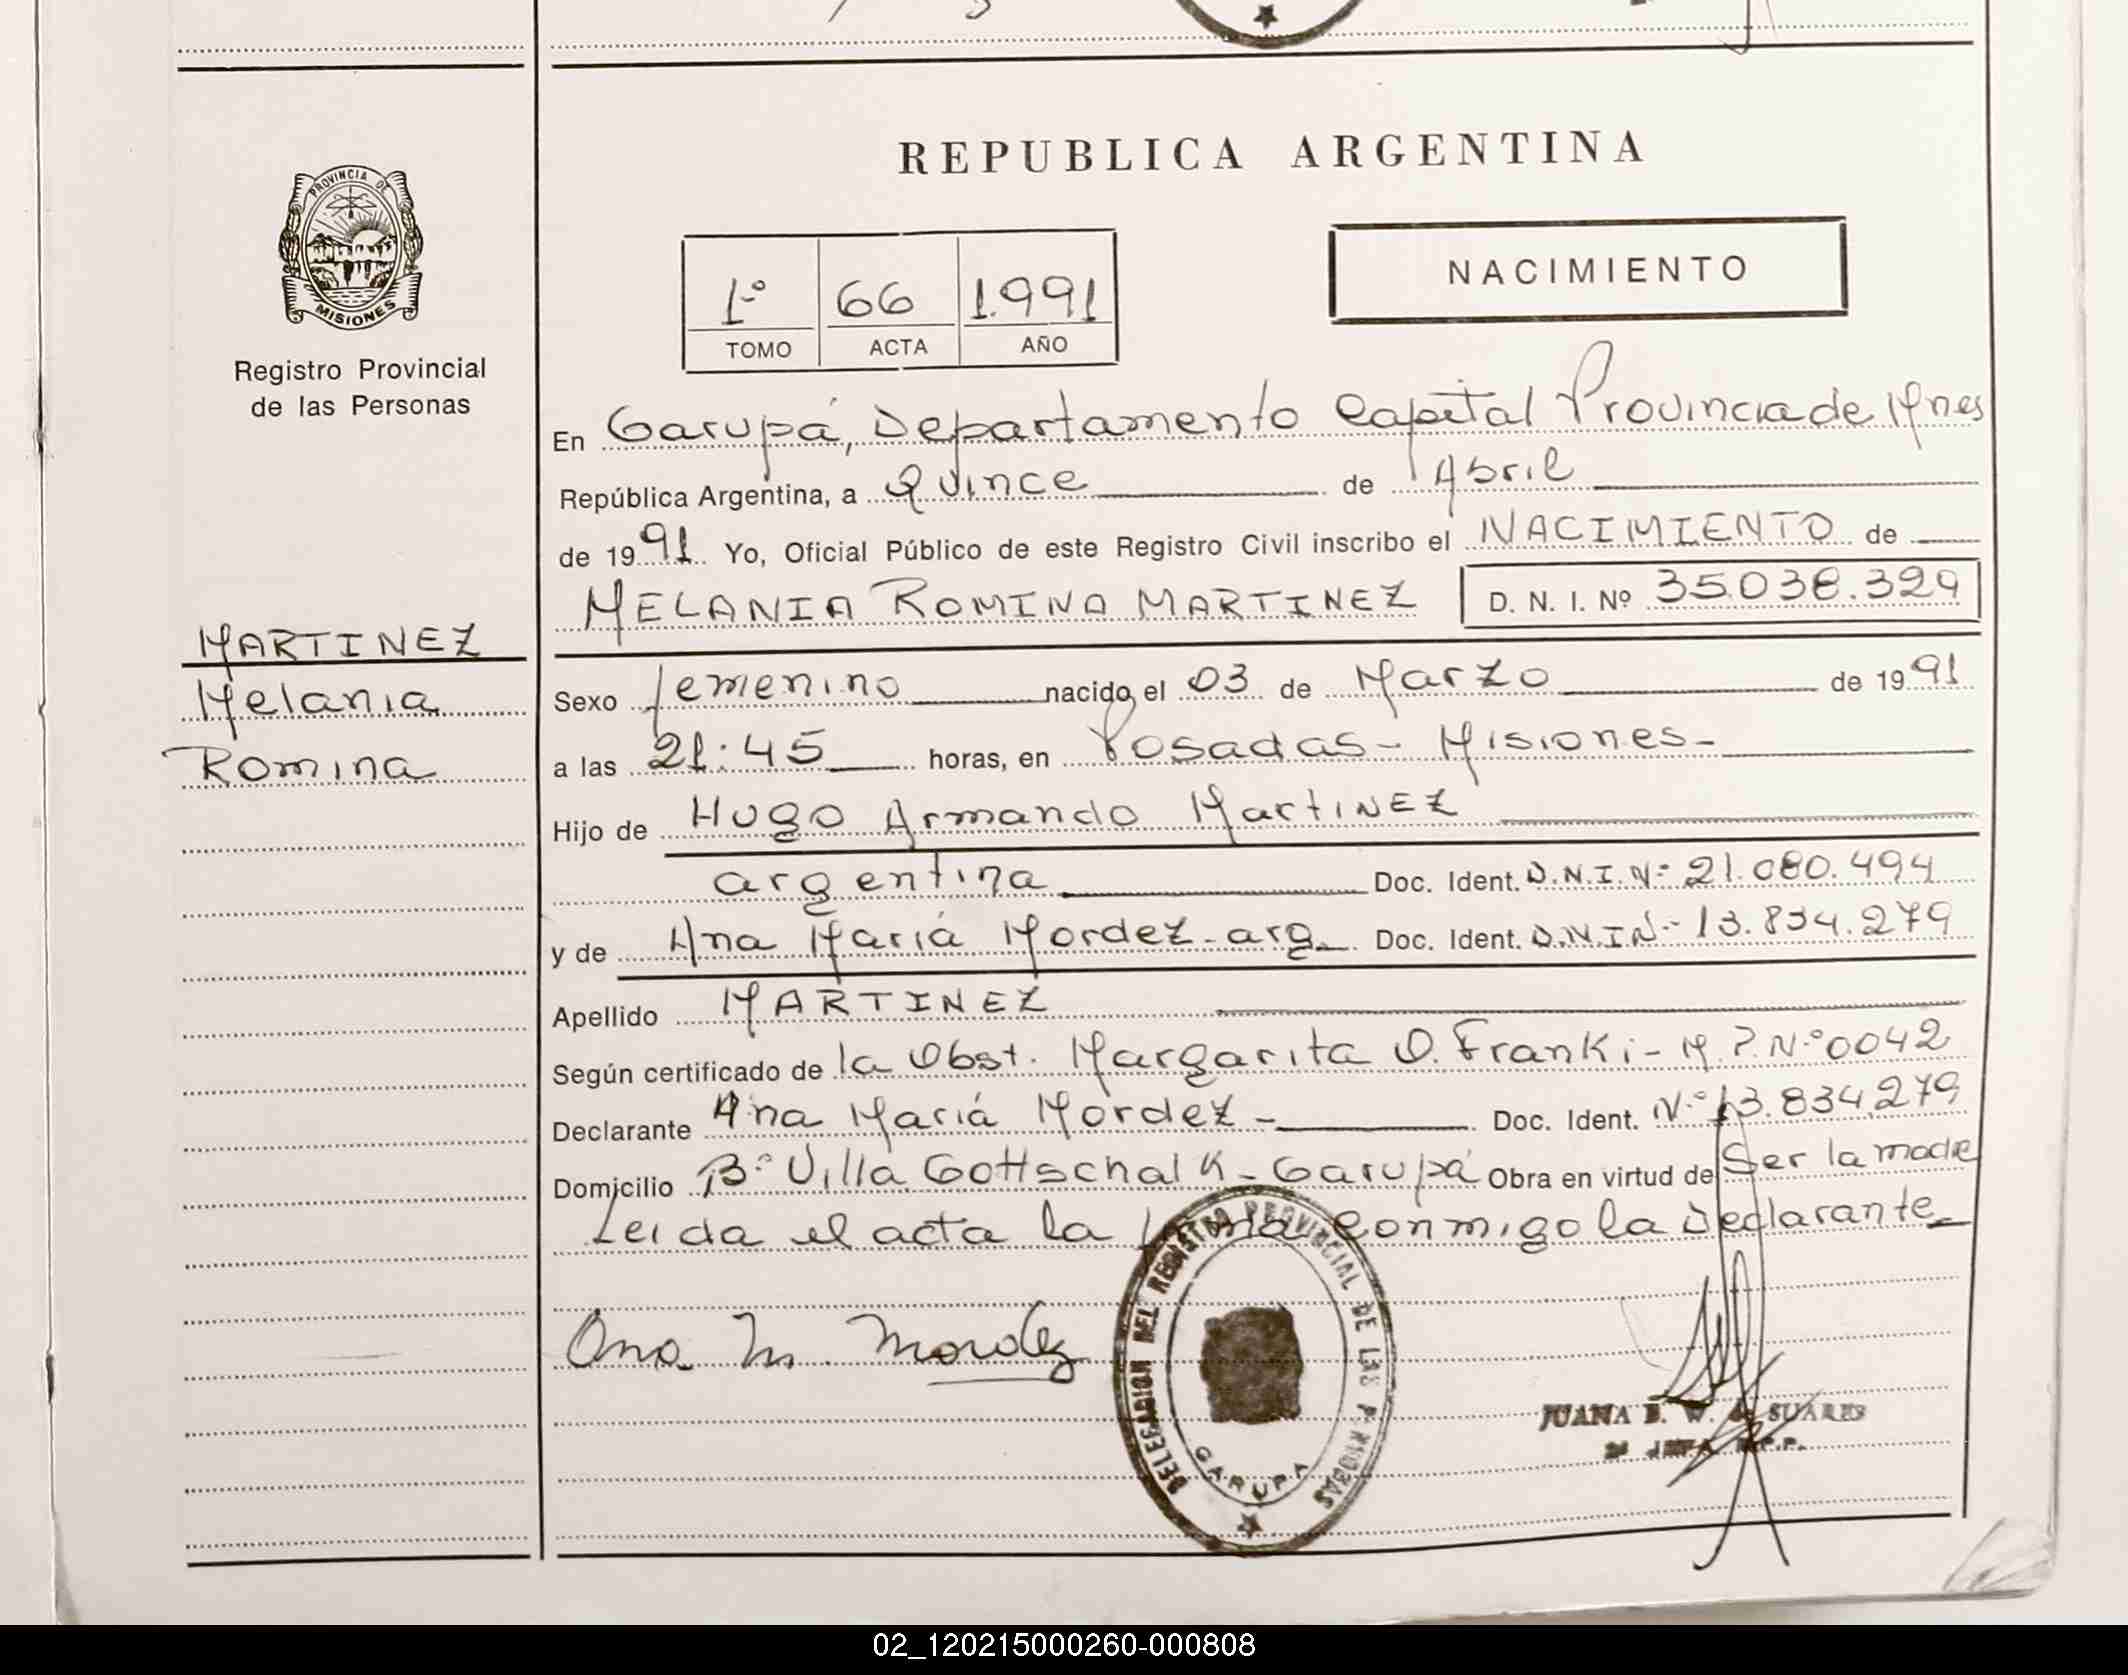 PROVINCIA DE
MISIONES
Registro Provincial
de las Personas
MARTINEZ
Melania
Romina
REPUBLICA ARGENTINA
1º 66 1.991
TOMO ACTA AÑO
NACIMIENTO
En Garupá, Departamento Capital Provincia de Mnes
República Argentina, a Quince de Abril
de 1991 Yo, Oficial Público de este Registro Civil inscribo el NACIMIENTO de
MELANIA ROMINA MARTINEZ D. N. I. Nº 35.038.329
Sexo femenino nacido el 03 de Marzo de 1991
a las 21:45 horas, en Posadas - Misiones -
Hijo de Hugo Armando MartINEZ
argentina Doc. Ident. D.N.I. Nº 21.080.494
y de Ana Mariá Mordez - arg. Doc. Ident. D.N.I.Nº 13.834.279
Apellido MARTINEZ
Según certificado de la Obst. Margarita O. Franki - M.P.Nº 0042
Declarante Ana Mariá Mordez - Doc. Ident. Nº 13.834.279
Domicilio Bº Villa Gottschalk - Garupá Obra en virtud de Ser la madre
Leida el acta la firma Conmigo la Declarante -
Ana M. Mordez
DELEGACION DEL REGISTRO PROVINCIAL DE LAS PERSONAS
GARUPA
JUANA E. W. de SUARES
02_120215000260-000808